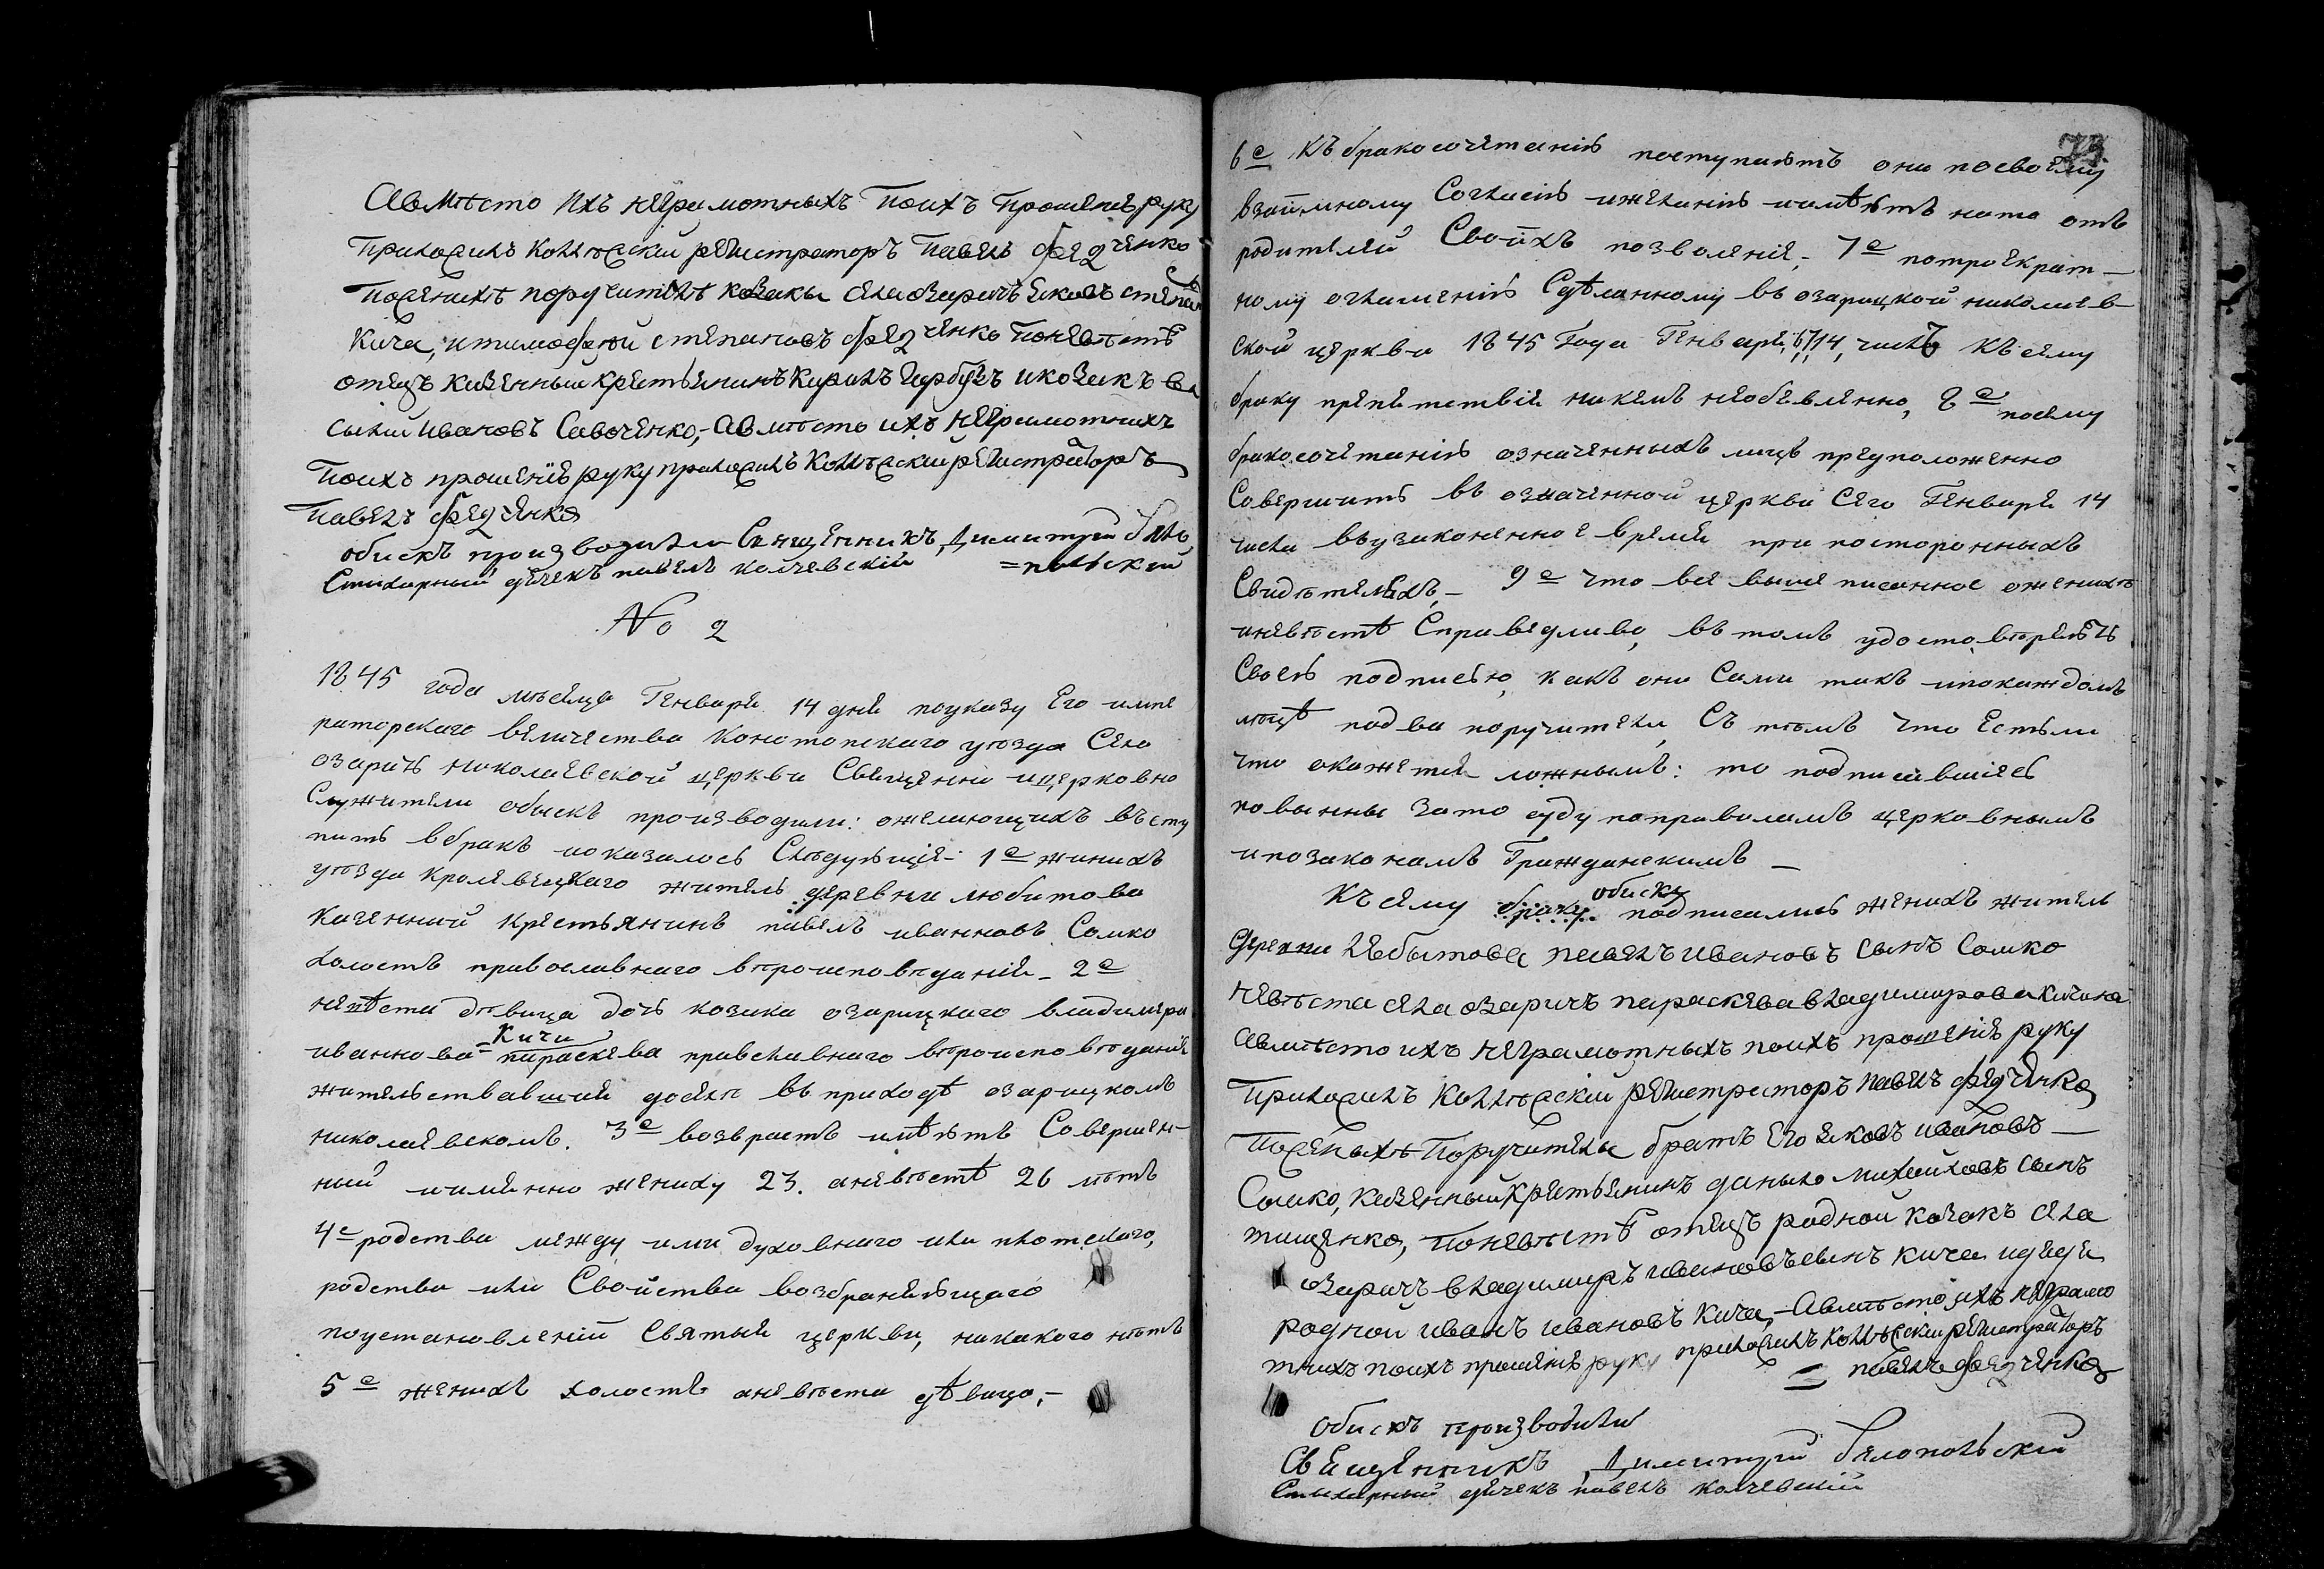 Авмѣсто Ихъ неграмотныхъ Поихъ Прошенiе руку
Приложилъ Коллежскiй регистраторъ Павелъ Федченко
Поженихѣ поручителѣ козаки села озаричъ Яковъ степан
Кича, итимофѣй степановъ Федченко Поневѣстѣ
отецъ Казенный крестьянинъ Кирилъ Гарбузъ икозакъ Ва
силий Ивановъ Савоченко,- Авмѣсто ихъ Неграмотнихъ
Поихъ прошенiе руку приложилъ Коллежскiй регистраторъ
Павелъ Федченко
обискъ производили Священникъ Димитрiй Бѣло
Стихарный дячекъ павелъ калчевскiй =польскiй
No 2
1845 года мѣсяца Генваря 14 дня поуказу Его импе
раторскаго величества Конотопскаго уѣзда Села
озаричъ николаевской церкви Священно ицерковно
Служители обыскъ производили: ожелающихъ въсту
пить вбракъ иоказалось Слѣдующiе- 1е жинихъ
уѣзда кролевецкаго житель деревни любитова
казенний крестьянинъ павелъ ивановъ Сомко
холостъ православнаго вѣроисповѣданiя- 2е
невѣста дѣвица дочь козака озарицкаго владимира
Кичи
иванова- параскева православнаго вѣроисповѣданiя
жительствавшая доселѣ въ приходѣ озарицкомъ
николаевскомъ. 3е возврастъ имѣютъ Совершен-
ний иименно жениху 23. аневѣстѣ 26 лѣтъ
4е родства между ими духовнаго или плотскаго,
родства или Свойства возбраняющаго
поустановленiй Святыя церкви, никакого нѣтъ
5е женихъ холостъ аневѣста дѣвица,-
73
6е Къ бракосочетанiю поступаютъ они посвоему
взаимному Согласiю ижеланiю иимѣютъ нато отъ
родителей Своихъ позволенiе,- 7е потроекрат-
ному оглашенiю Сдѣланному въ озарицкой николаев-
ской церкви 1845 Года Генваря, 6, 7, 14, числъ Къ сему
браку препятствiя никемъ необявленно, 8е посему
бракосочетанiю означенныхъ лицъ предположенно
Совершить въ означенной церкви Сего Генваря 14
числа въузаконенное время при посторонныхъ
Свидѣтеляхъ,- 9е что все выше писанное ожених�ѣ
иневѣстѣ Справедливо, въ томъ удостовѣряютъ
Своею подписью, какъ они Сами такъ ипокаждомъ
лицѣ подва поручители, Съ тѣмъ что Естьли
что окажется ложнымъ: то подписавшiеся
повынны зато суду поправиламъ церковнымъ
ипозаконамъ Гражданскимъ -
обиску
Къ сему браку подписались женихъ житель
Деревни Любытова Павелъ Ивановъ сынъ Сомко
Невѣста села озаричъ параскева владимирова Кичина
Авмѣсто ихъ Неграмотныхъ поихъ прошенiе руку
Приложилъ Коллежскiй регистраторъ Павелъ федченко
Поженихѣ Поручители братъ Его Яковъ Ивановъ-
Сомко, Казенный крестьянинъ данило михайловъ сынъ
тищенко, Поневѣстѣ отецъ родной козакъ села
озаричъ владимиръ ивановъ сынъ кича идядя
родной иванъ ивановъ кича,- Авмѣсто ихъ неграмо
тнихъ поихъ прошенiе руку приложилъ Коллежскiй регистраторъ
павелъ федченко
обискъ производили
Священникъ Димитрiй Бѣлопольскiй
Стихарный дячекъ павелъ калчевскiй